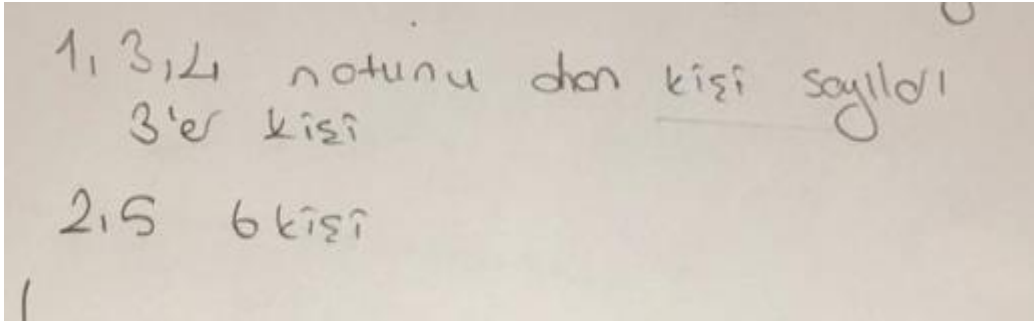 1, 3, 4 notunu alan kişi sayıldı
3'er kişi
2, 5 6 kişi